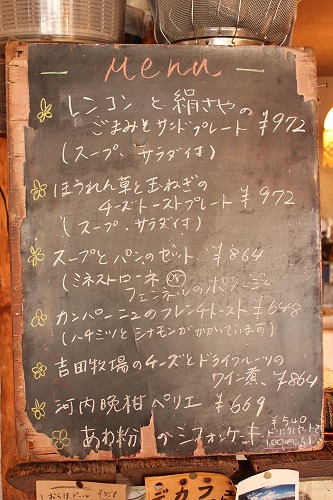 Menu
レンコンと絹さやの
ごまみそサンドプレート ¥972
(スープ、サラダ付)
ほうれん草と玉ねぎの
チーズトーストプレート ¥972
(スープ・サラダ付)
スープとパンのセット ¥864
(ミネストローネ or
フェンネルのポタージュ
カンパーニュのフレンチトースト ¥648
(ハチミツとシナモンがかかっています)
吉田牧場のチーズとドライフルーツの
ワイン煮 ¥864
河内晩柑ペリエ ¥669
あわ粉のシフォンケーキ ¥540